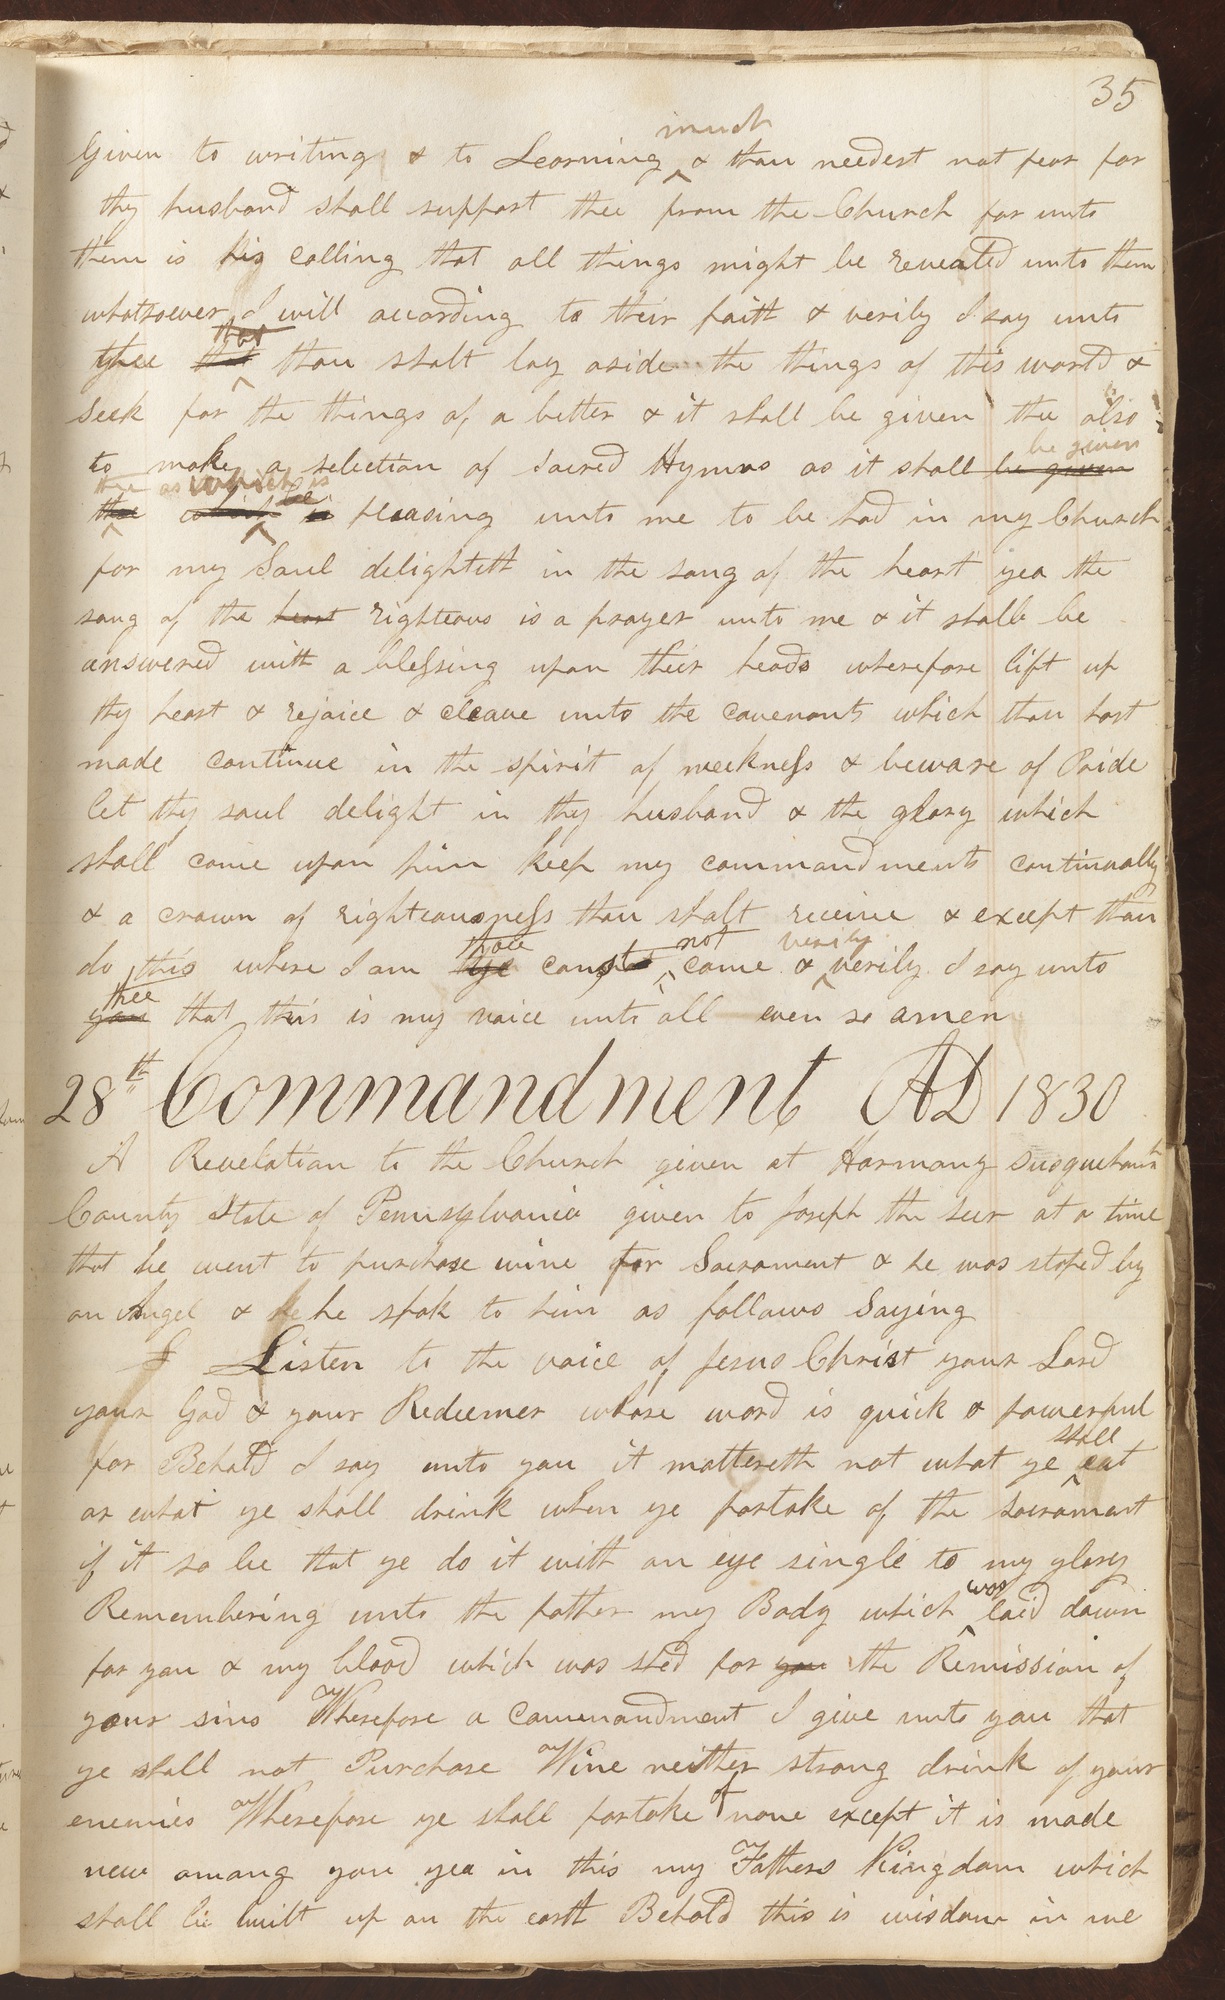 35
Given to writing & to Learning much & thou needest not fear for
thy husband shall support thee from the Church for unto
them is his calling that all things might be revealed unto them
whatsoever I will according to their faith & verily I say unto
thee that that thou shalt lay aside the things of this world &
seek for the things of a better & it shall be given thee also
to make a selection of Sacred Hymns as it shall be given be given
thee thee as which which is be is pleasing unto me to be had in my Church
for my Soul delighteth in the song of the heart yea the
song of the heart righteous is a prayer unto me & it shall be
answered with a blessing upon their heads wherefore lift up
thy heart & rejoice & cleave unto the covenants which thou hast
made continue in the spirit of meekness & beware of Pride
let thy soul delight in thy husband & the glory which
shall come upon him keep my commandments continually
& a crown of righteousness thou shalt receive & except thou
do this where I am ye thou canst not come & verily verily I say unto
you thee that this is my voice unto all even so amen
28th Commandment AD 1830
A Revelation to the Church given at Harmony Susquehanna
County State of Pennsylvania given to Joseph the Seer at a time
that he went to purchase wine for Sacrament & he was stoped by
an Angel & he he spok to him as follows Saying
Listen to the voice of Jesus Christ your Lord
your God & your Redeemer whose word is quick & powerful
for Behold I say unto you it mattereth not what ye shall eat
or what ye shall drink when ye partake of the sacrament
if it so be that ye do it with an eye single to my glory
Remembering unto the father my Body which was laid down
for you & my blood which was shed for you the Remission of
your sins Wherefore a commandment I give unto you that
ye shall not Purchase Wine neither strong drink of your
enemies Wherefore ye shall partake of none except it is made
new among you yea in this my Fathers Kingdom which
shall be built up on the earth Behold this is wisdom in me